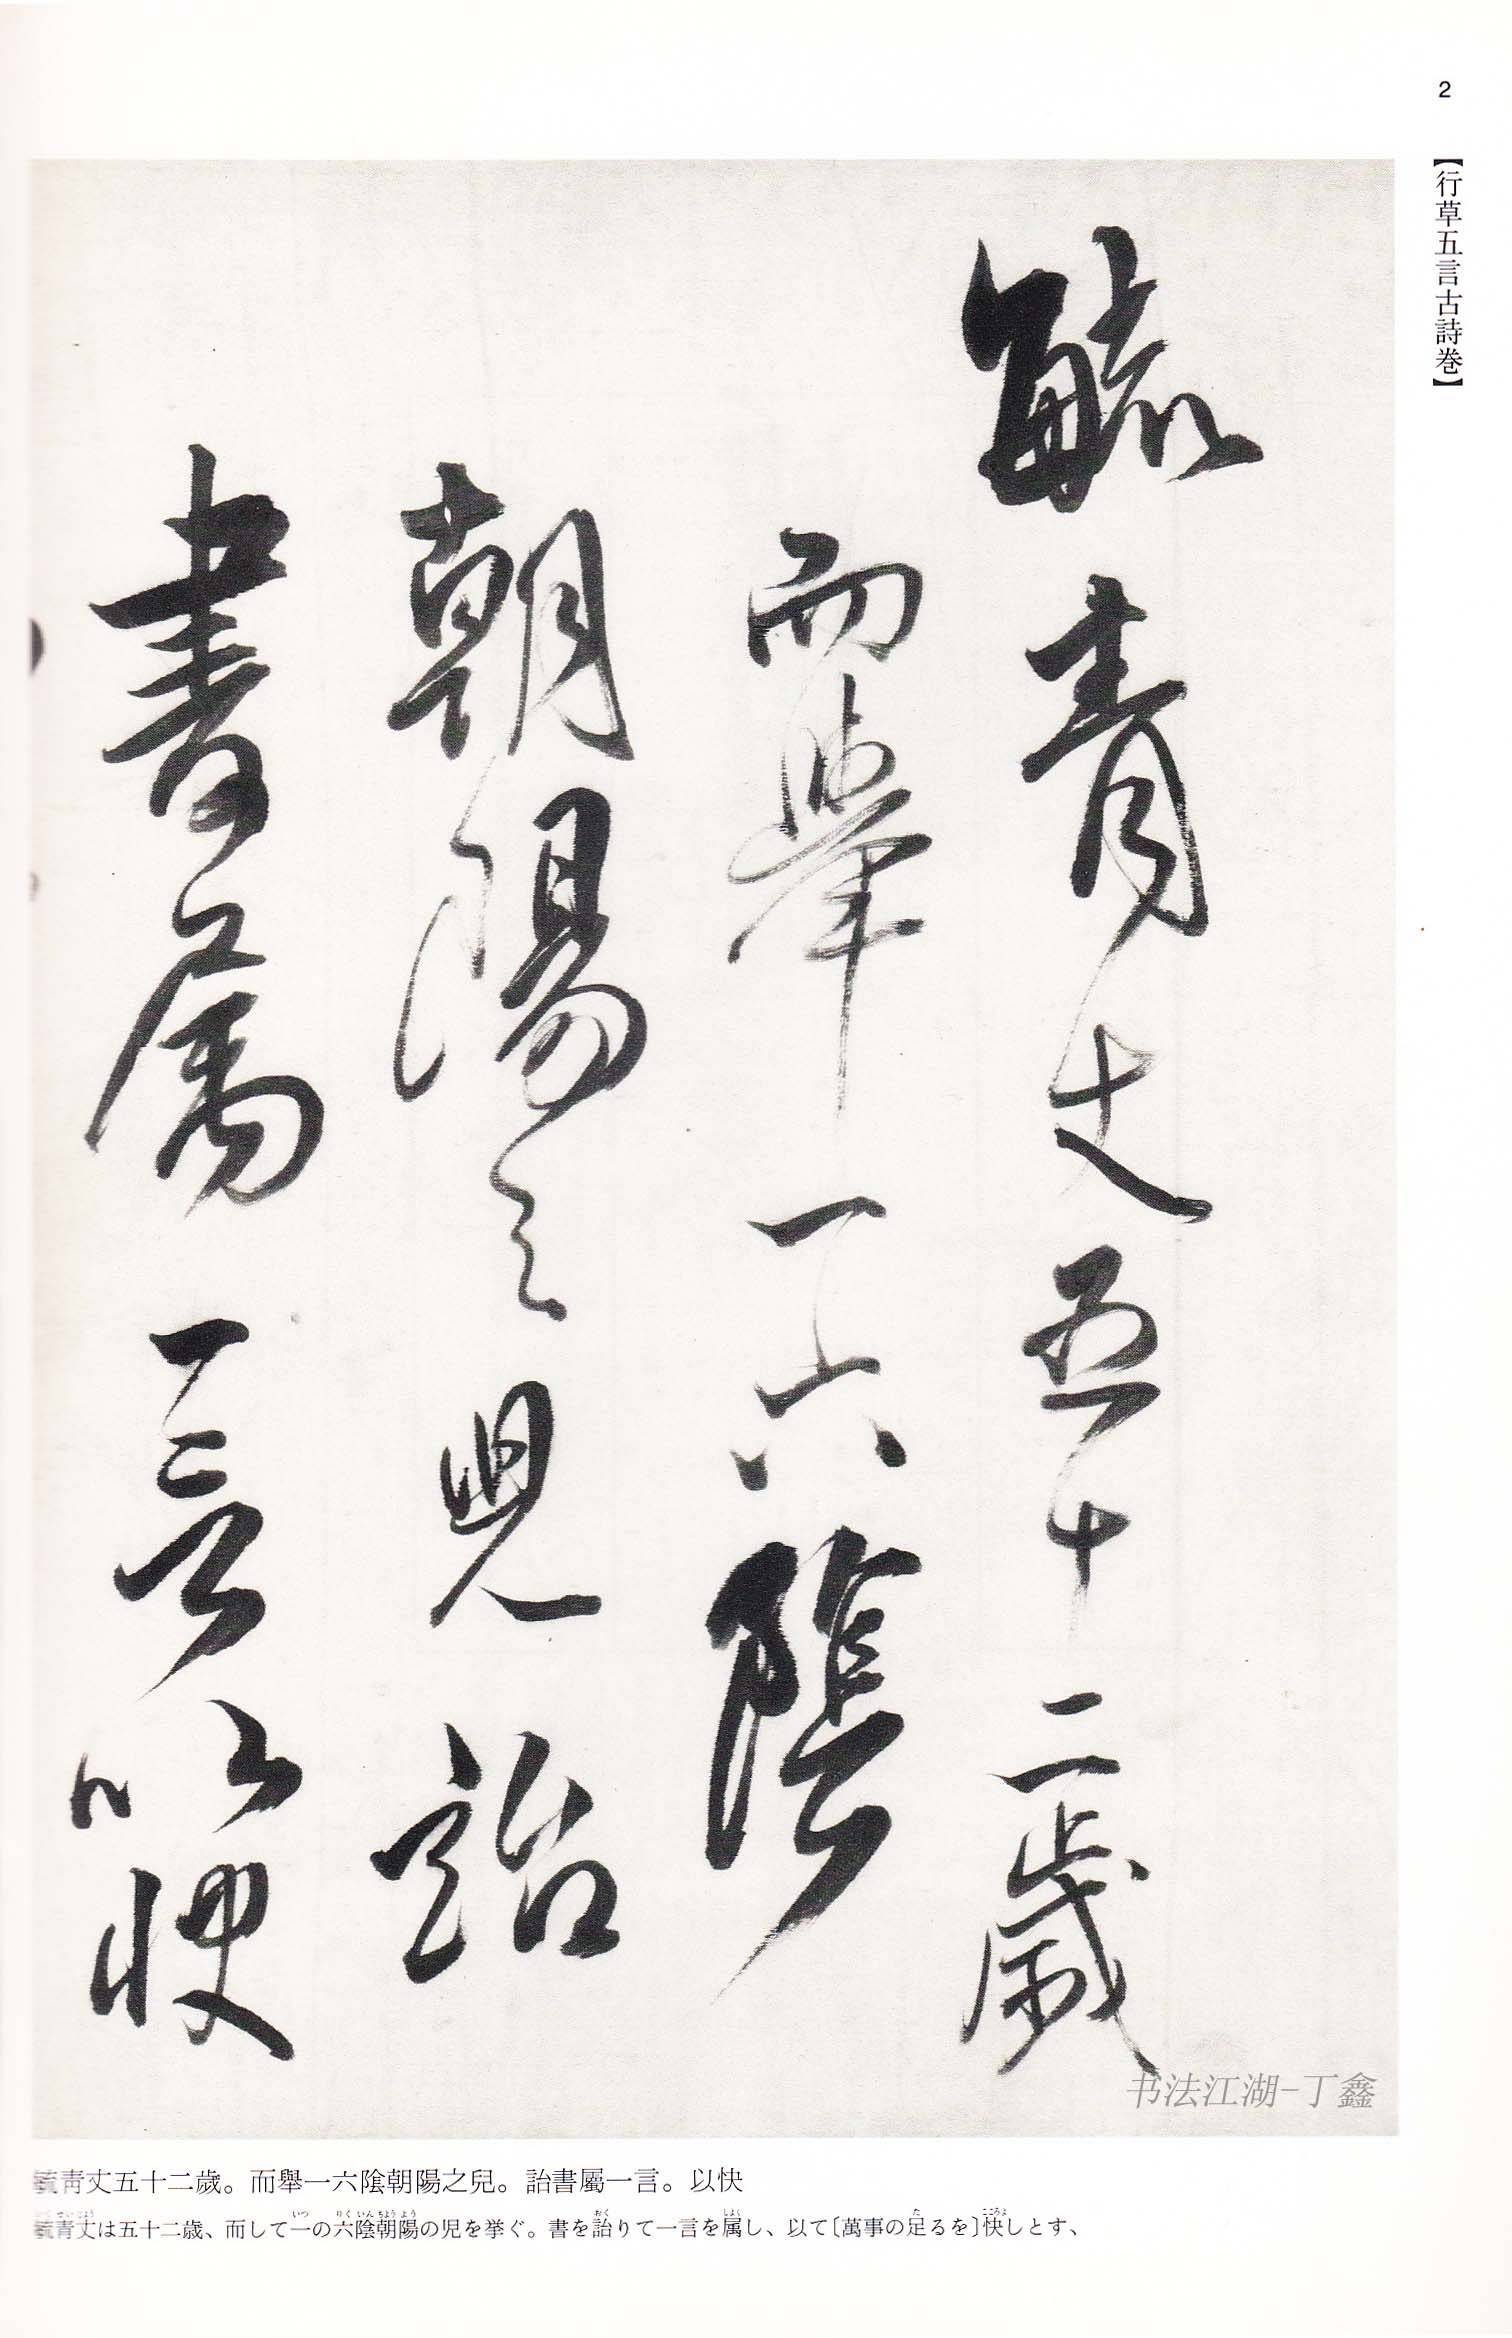 2
【行草五言古詩巻】
毓青丈五十二歳
而舉一六陰
朝陽之兒詒
書屬一言以快
书法江湖-丁鑫
毓靑丈五十二歲。而舉一六陰朝陽之兒。詒書屬一言。以快
毓青丈は五十二歳、而して一の六陰朝陽の児を挙ぐ。書を詒りて一言を属し、以て〔萬事の足るを〕快しとす、